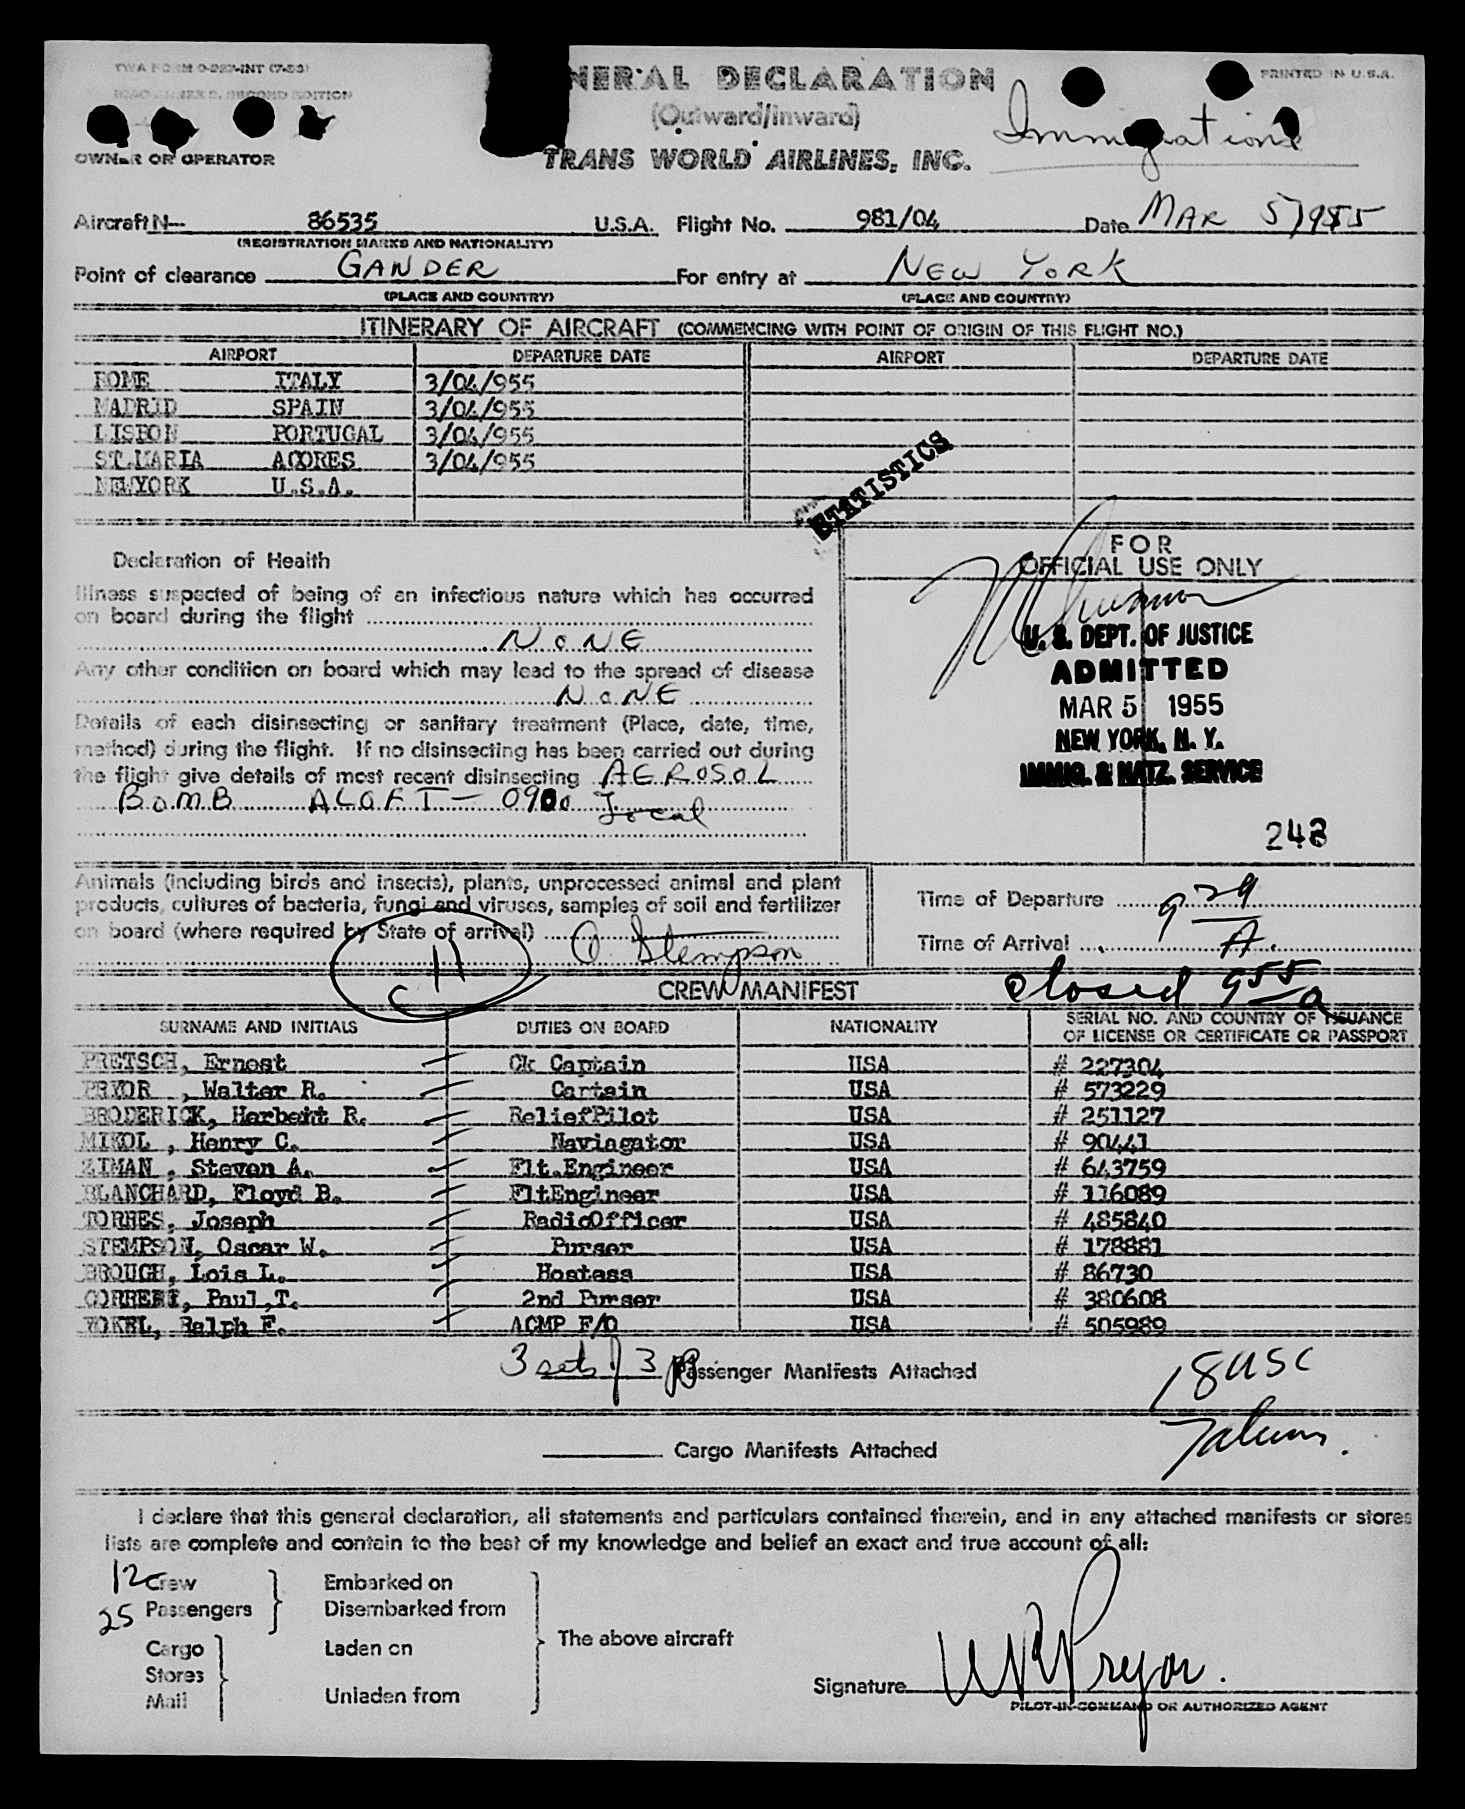 TWA FORM O-227-INT (7-53)
ICAO ANNEX 9, SECOND EDITION
NERAL DECLARATION
PRINTED IN U.S.A.
(Outward/Inward)
Immigration
OWNER OR OPERATOR
TRANS WORLD AIRLINES, INC.
Aircraft N- 86535 U.S.A. Flight No. 981/04 Date MAR 5, 1955
(REGISTRATION MARKS AND NATIONALITY)
Point of clearance GANDER For entry at NEW YORK
(PLACE AND COUNTRY) (PLACE AND COUNTRY)
ITINERARY OF AIRCRAFT (COMMENCING WITH POINT OF ORIGIN OF THIS FLIGHT NO.)
AIRPORT DEPARTURE DATE AIRPORT DEPARTURE DATE
ROME ITALY 3/04/955
MADRID SPAIN 3/04/955
LISBON PORTUGAL 3/04/955
ST.MARIA ACORES 3/04/955
NEWYORK U.S.A.
STATISTICS
Declaration of Health
FOR
OFFICIAL USE ONLY
Illness suspected of being of an infectious nature which has occurred
on board during the flight
NONE
Any other condition on board which may lead to the spread of disease
NONE
Details of each disinsecting or sanitary treatment (Place, date, time,
method) during the flight. If no disinsecting has been carried out during
the flight give details of most recent disinsecting AEROSOL
BOMB ALOFT - 0900 Local
U. S. DEPT. OF JUSTICE
ADMITTED
MAR 5 1955
NEW YORK, N. Y.
IMMIG. & NATZ. SERVICE
248
Animals (including birds and insects), plants, unprocessed animal and plant
products, cultures of bacteria, fungi and viruses, samples of soil and fertilizer
on board (where required by State of arrival) O Stempson
Time of Departure 9 29
Time of Arrival A.
11
closed 9 55 a
CREW MANIFEST
SURNAME AND INITIALS DUTIES ON BOARD NATIONALITY SERIAL NO. AND COUNTRY OF ISSUANCE
OF LICENSE OR CERTIFICATE OR PASSPORT
PRETSCH, Ernest Ck Captain USA # 227304
PRYOR , Walter R. Captain USA # 573229
BRODERICK, Herbert R. ReliefPilot USA # 251127
MIKOL , Henry C. Naviagator USA # 90441
ZIMAN , Steven A. Flt.Engineer USA # 643759
BLANCHARD, Floyd B. FltEngineer USA # 116089
TORRES, Joseph RadioOfficer USA # 485840
STEMPSON, Oscar W. Purser USA # 178881
BROUGH, Lois L. Hostess USA # 86730
Paul,T. 2nd Purser USA # 380608
Ralph F. ACMP F/O USA # 505989
3 sets of 3 pp Passenger Manifests Attached
18 USC
Cargo Manifests Attached
I declare that this general declaration, all statements and particulars contained therein, and in any attached manifests or stores
lists are complete and contain to the best of my knowledge and belief an exact and true account of all:
12 Crew Embarked on
25 Passengers Disembarked from
Cargo Laden on The above aircraft
Stores
Mail Unladen from
Signature W R Pryor.
PILOT-IN-COMMAND OR AUTHORIZED AGENT